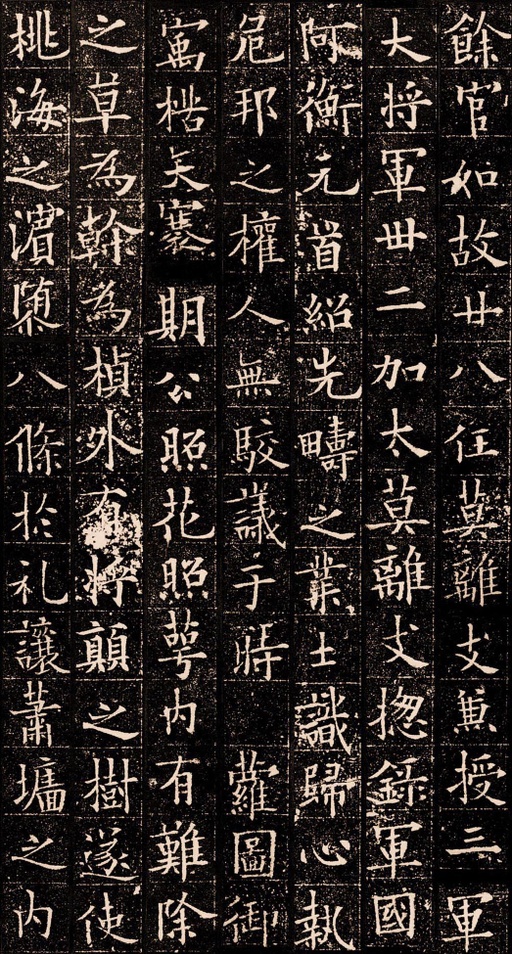 餘官如故廿八任莫離支兼授三軍
大将軍卅二加太莫離支惣録軍國
阿衡元首紹先疇之業士識歸心執
危邦之權人無駮議于時 蘿圖御
寓楛矢褰期公照花照萼内有難除
之草為幹為楨外有将顛之樹遂使
桃海之濵隳八條於礼讓蕭墻之内